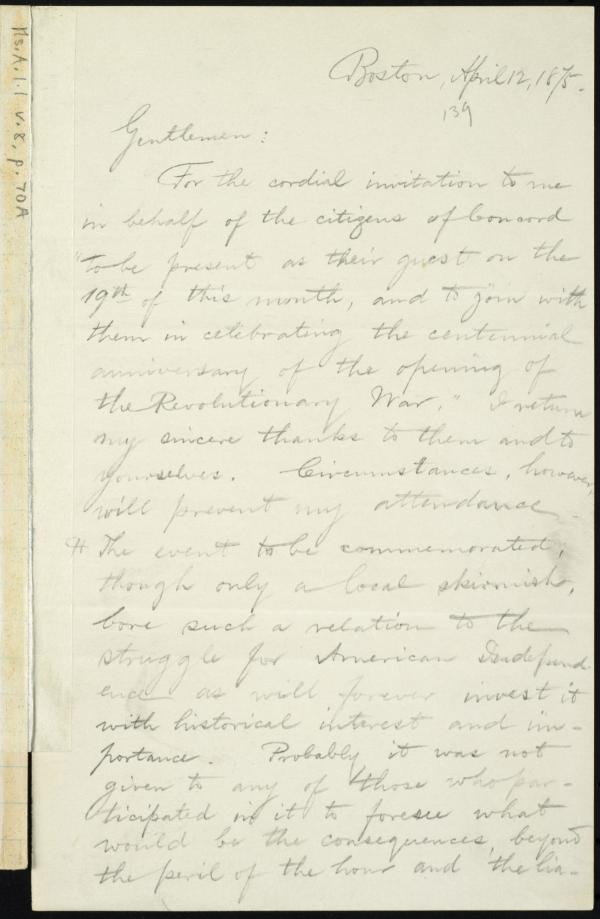 Ms.A.1.1 v.8, p.70A
Boston, April 12, 1875.
139
Gentlemen:
For the cordial invitation to me
in behalf of the citizens of Concord
"to be present as their guest on the
19th of this month, and to join with
them in celebrating the centennial
anniversary of the opening of
the Revolutionary War," I return
my sincere thanks to them and to
yourselves. Circumstances, however,
will prevent my attendance.
The event to be commemorated,
though only a local skirmish,
bore such a relation to the
struggle for American Independ-
ence as will forever invest it
with historical interest and im-
portance. Probably it was not
given to any of those who par-
ticipated in it to foresee what
would be the consequences, beyond
the peril of the hour and the lia-